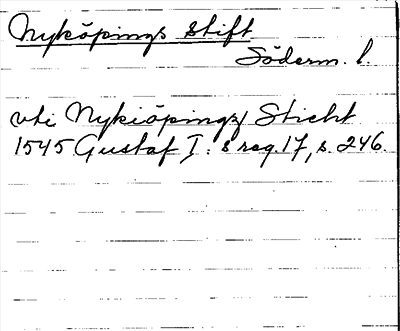 Nyköpings stift
Söderm. l.
vti Nykiöpingz Sticht
1545 Gustaf I:s reg. 17, s. 246.